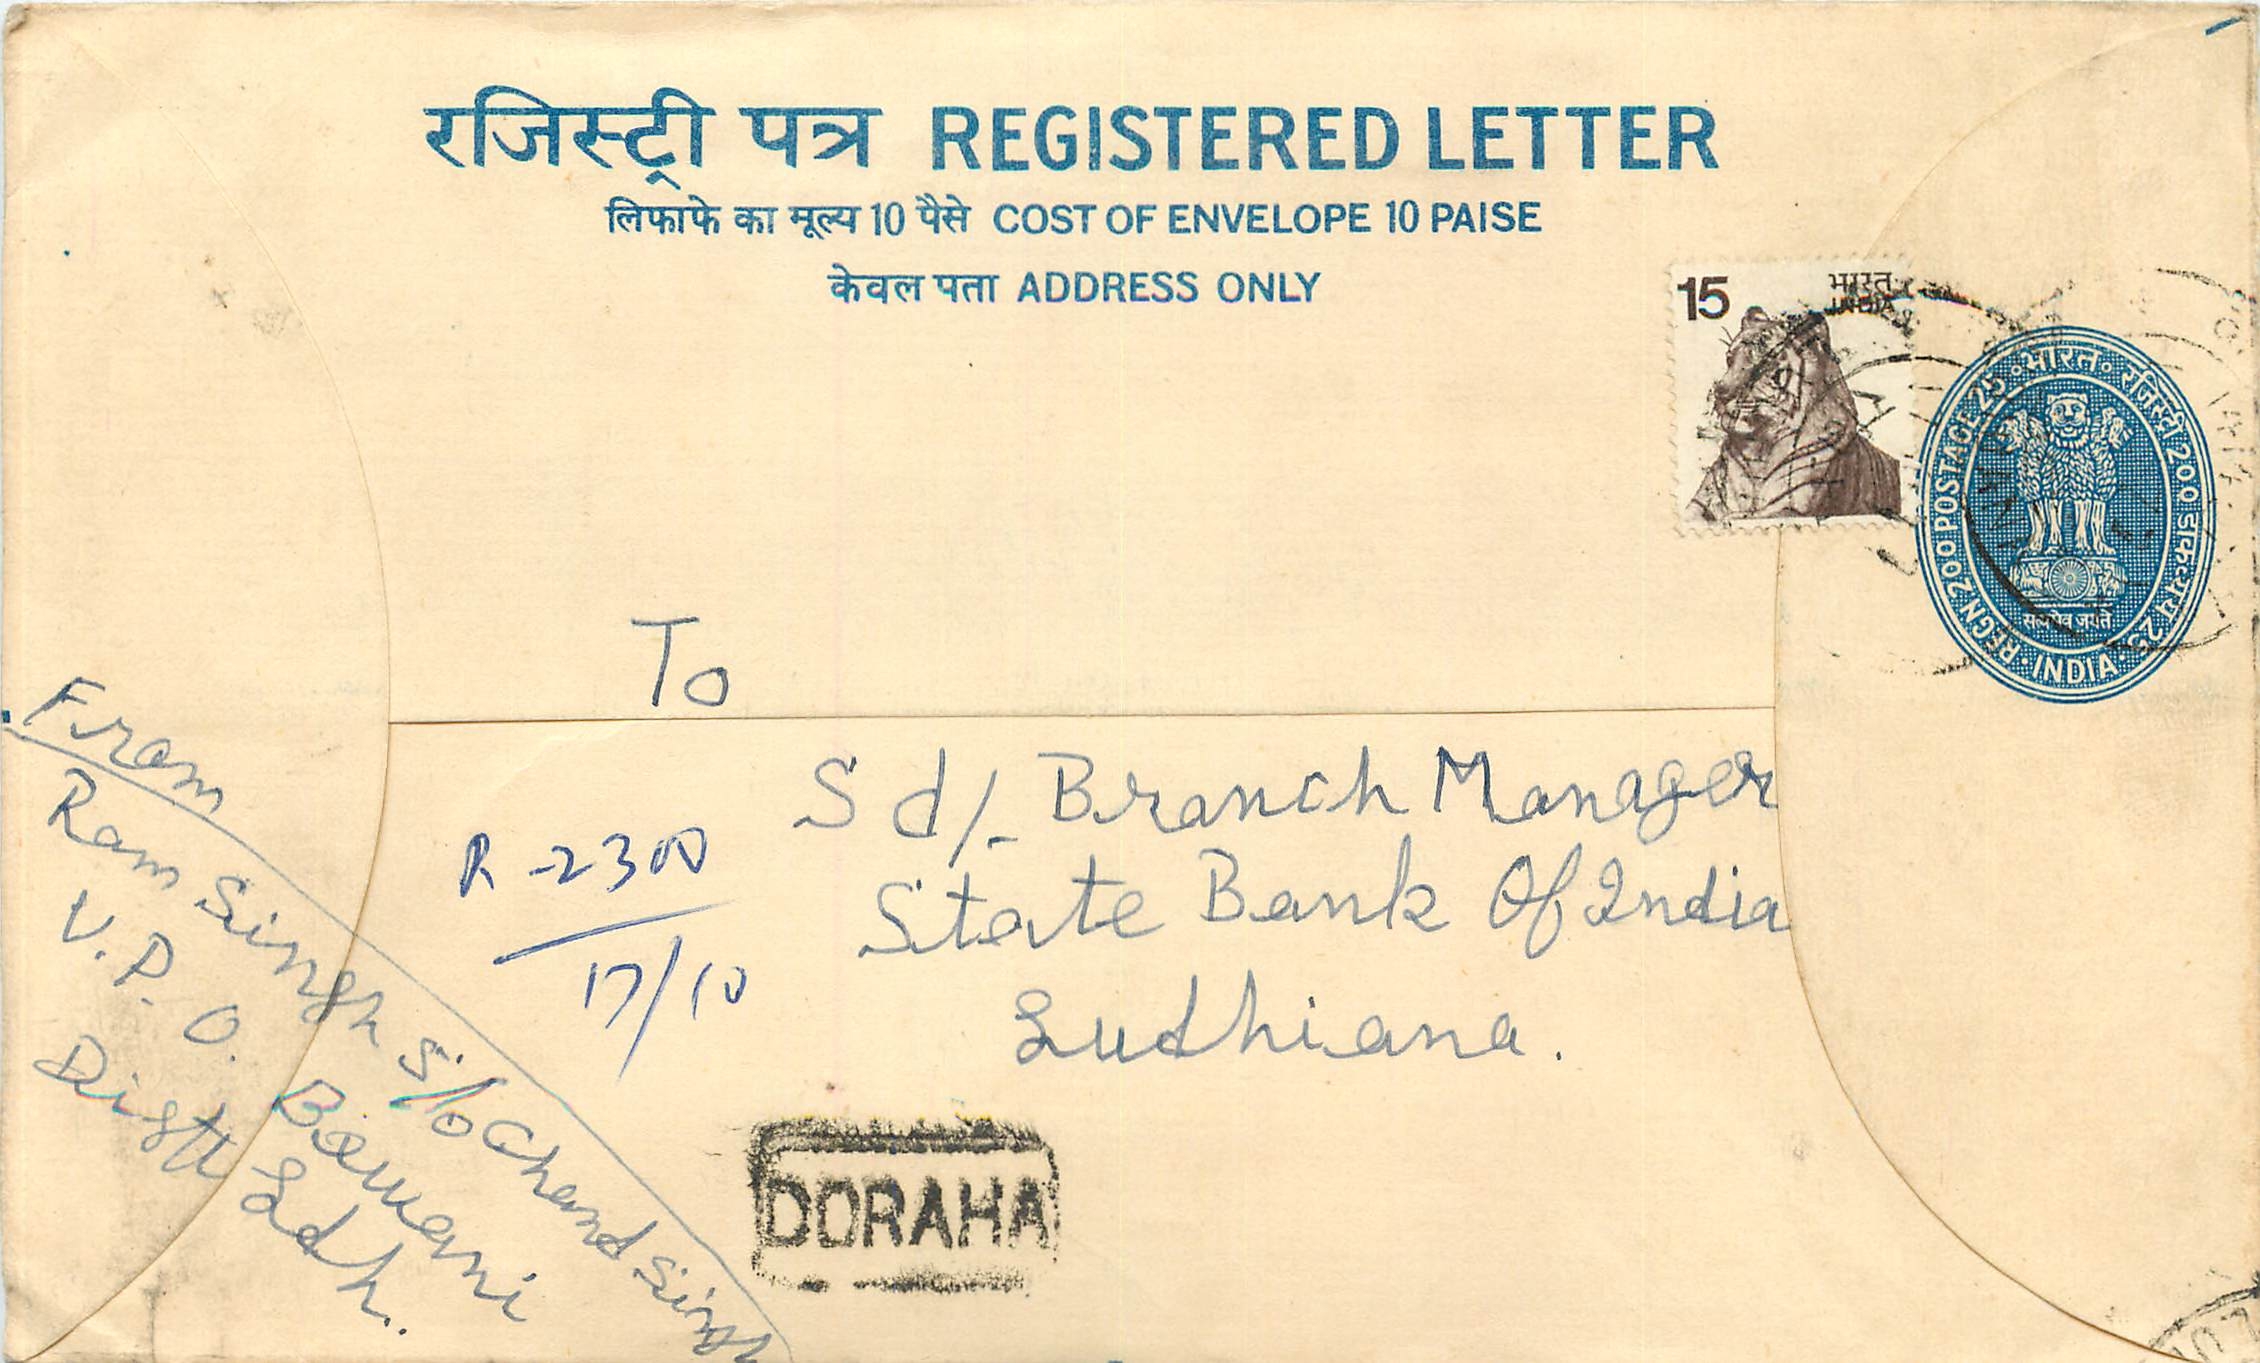 रजिस्ट्री पत्र REGISTERED LETTER
लिफाफे का मूल्य 10 पैसे COST OF ENVELOPE 10 PAISE
केवल पता ADDRESS ONLY
15 भारत INDIA
भारत रजिस्ट्री 200 डाक व्यय 25
REGN 200 POSTAGE 25
सत्यमेव जयते
INDIA
To
Sd/- Branch Manager
State Bank Of India
Ludhiana.
R-2300
17/10
From
Ram Singh S/o Chand Singh
V.P.O.
Distt Ldh.
DORAHA